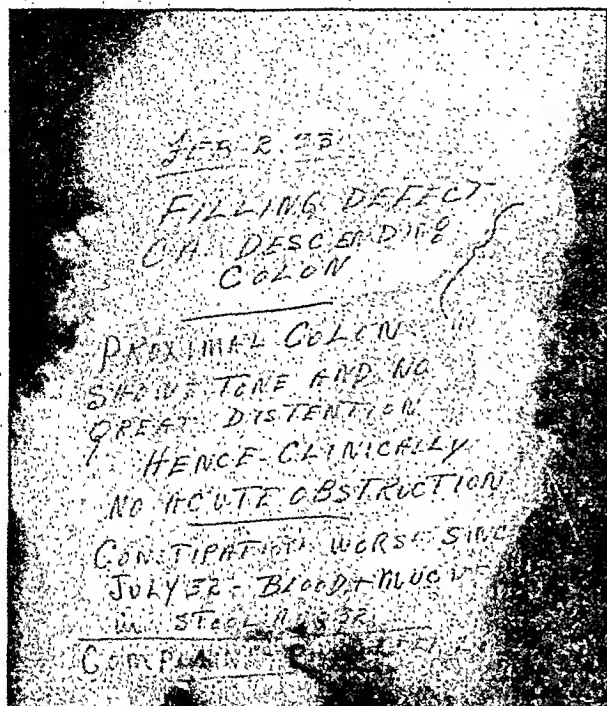 FEB 2.33
FILLING DEFECT
CA. DESCENDING
COLON
PROXIMAL COLON
SHOWS TONE AND NO
GREAT DISTENTION
HENCE-CLINICALLY
NO ACUTE OBSTRUCTION
CONSTIPATION WORSE SINCE
JULY 32 - BLOOD + MUCUS
IN STOOL AUG 32
COMPLAINT